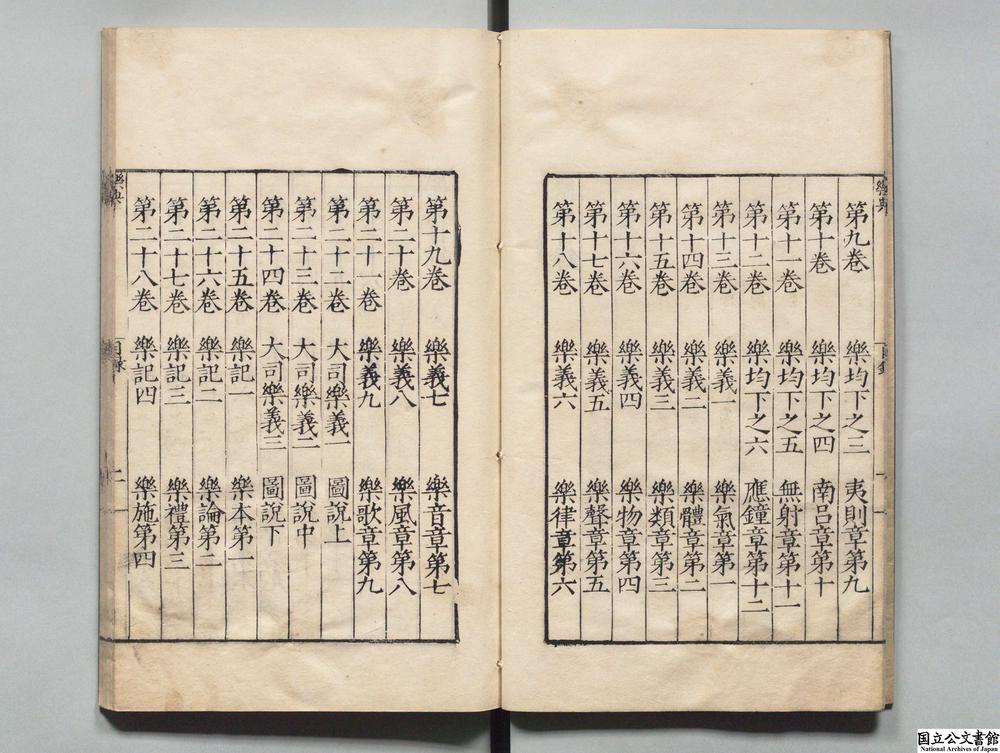 樂典
第九卷 樂均下之三 夷則章第九
第十卷 樂均下之四 南呂章第十
第十一卷 樂均下之五 無射章第十一
第十二卷 樂均下之六 應鐘章第十二
第十三卷 樂義一 樂氣章第一
第十四卷 樂義二 樂體章第二
第十五卷 樂義三 樂類章第三
第十六卷 樂義四 樂物章第四
第十七卷 樂義五 樂聲章第五
第十八卷 樂義六 樂律章第六
第十九卷 樂義七 樂音章第七
第二十卷 樂義八 樂風章第八
第二十一卷 樂義九 樂歌章第九
第二十二卷 大司樂義一 圖說上
第二十三卷 大司樂義二 圖說中
第二十四卷 大司樂義三 圖說下
第二十五卷 樂記一 樂本第一
第二十六卷 樂記二 樂論第二
第二十七卷 樂記三 樂禮第三
第二十八卷 樂記四 樂施第四
樂典 目錄 二
国立公文書館
National Archives of Japan